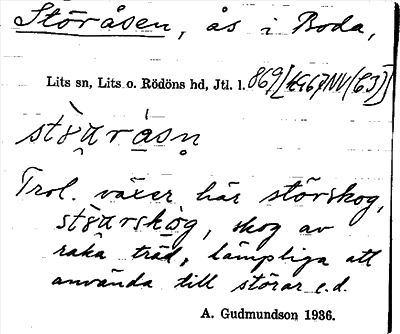 Störåsen, ås i Boda,
Lits sn, Lits o. Rödöns hd, Jtl. l. 869
Trol. växer här störskog,
skog av
raka träd, lämpliga att
använda till störar e.d.
A. Gudmundson 1936.